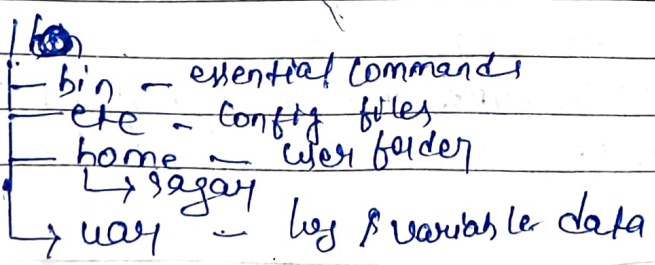 /
bin - essential commands
etc - config files
home - user folder
↳ sagar
→ var - log & variable data